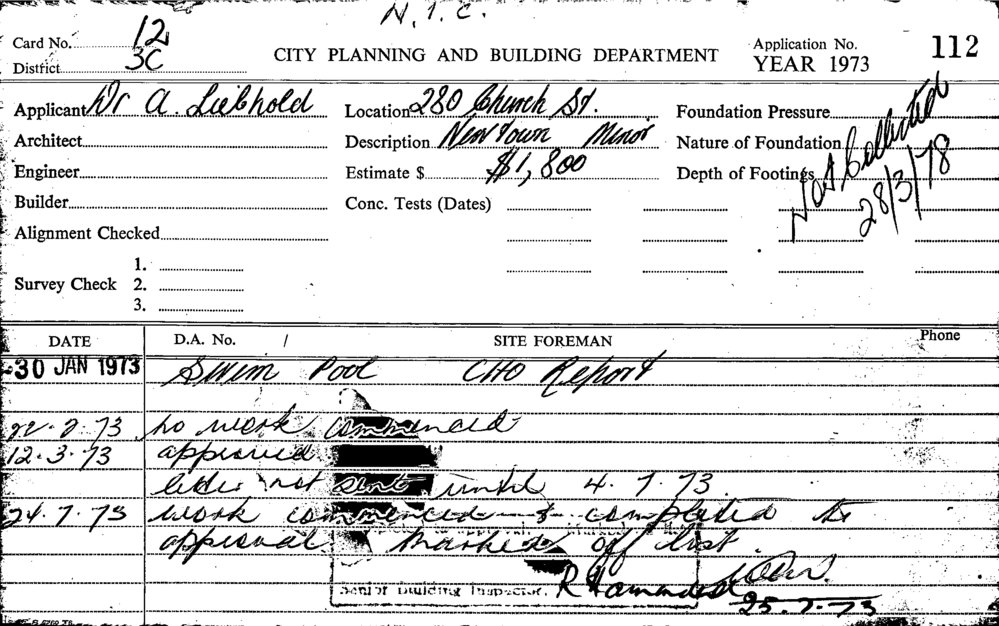 N.I.C.
Card No. 12
District 3C
CITY PLANNING AND BUILDING DEPARTMENT
Application No. 112
YEAR 1973
Applicant Dr A. Liebhold
Location 280 Church St.
Foundation Pressure
Architect
Description New Town Minor
Nature of Foundation
Engineer
Estimate $ $1,800
Depth of Footings
Not Collected
28/3/78
Builder
Conc. Tests (Dates)
Alignment Checked
Survey Check
1.
2.
3.
DATE D.A. No. / SITE FOREMAN Phone
30 JAN 1973 Swim Pool CHO Report
22.2.73 no work commenced
12.3.73 approved
letter not sent until 4.7.73
24.7.73 work commenced & completed to
approval marked off list
Senior Building Inspector. R Hammond
25.7.73